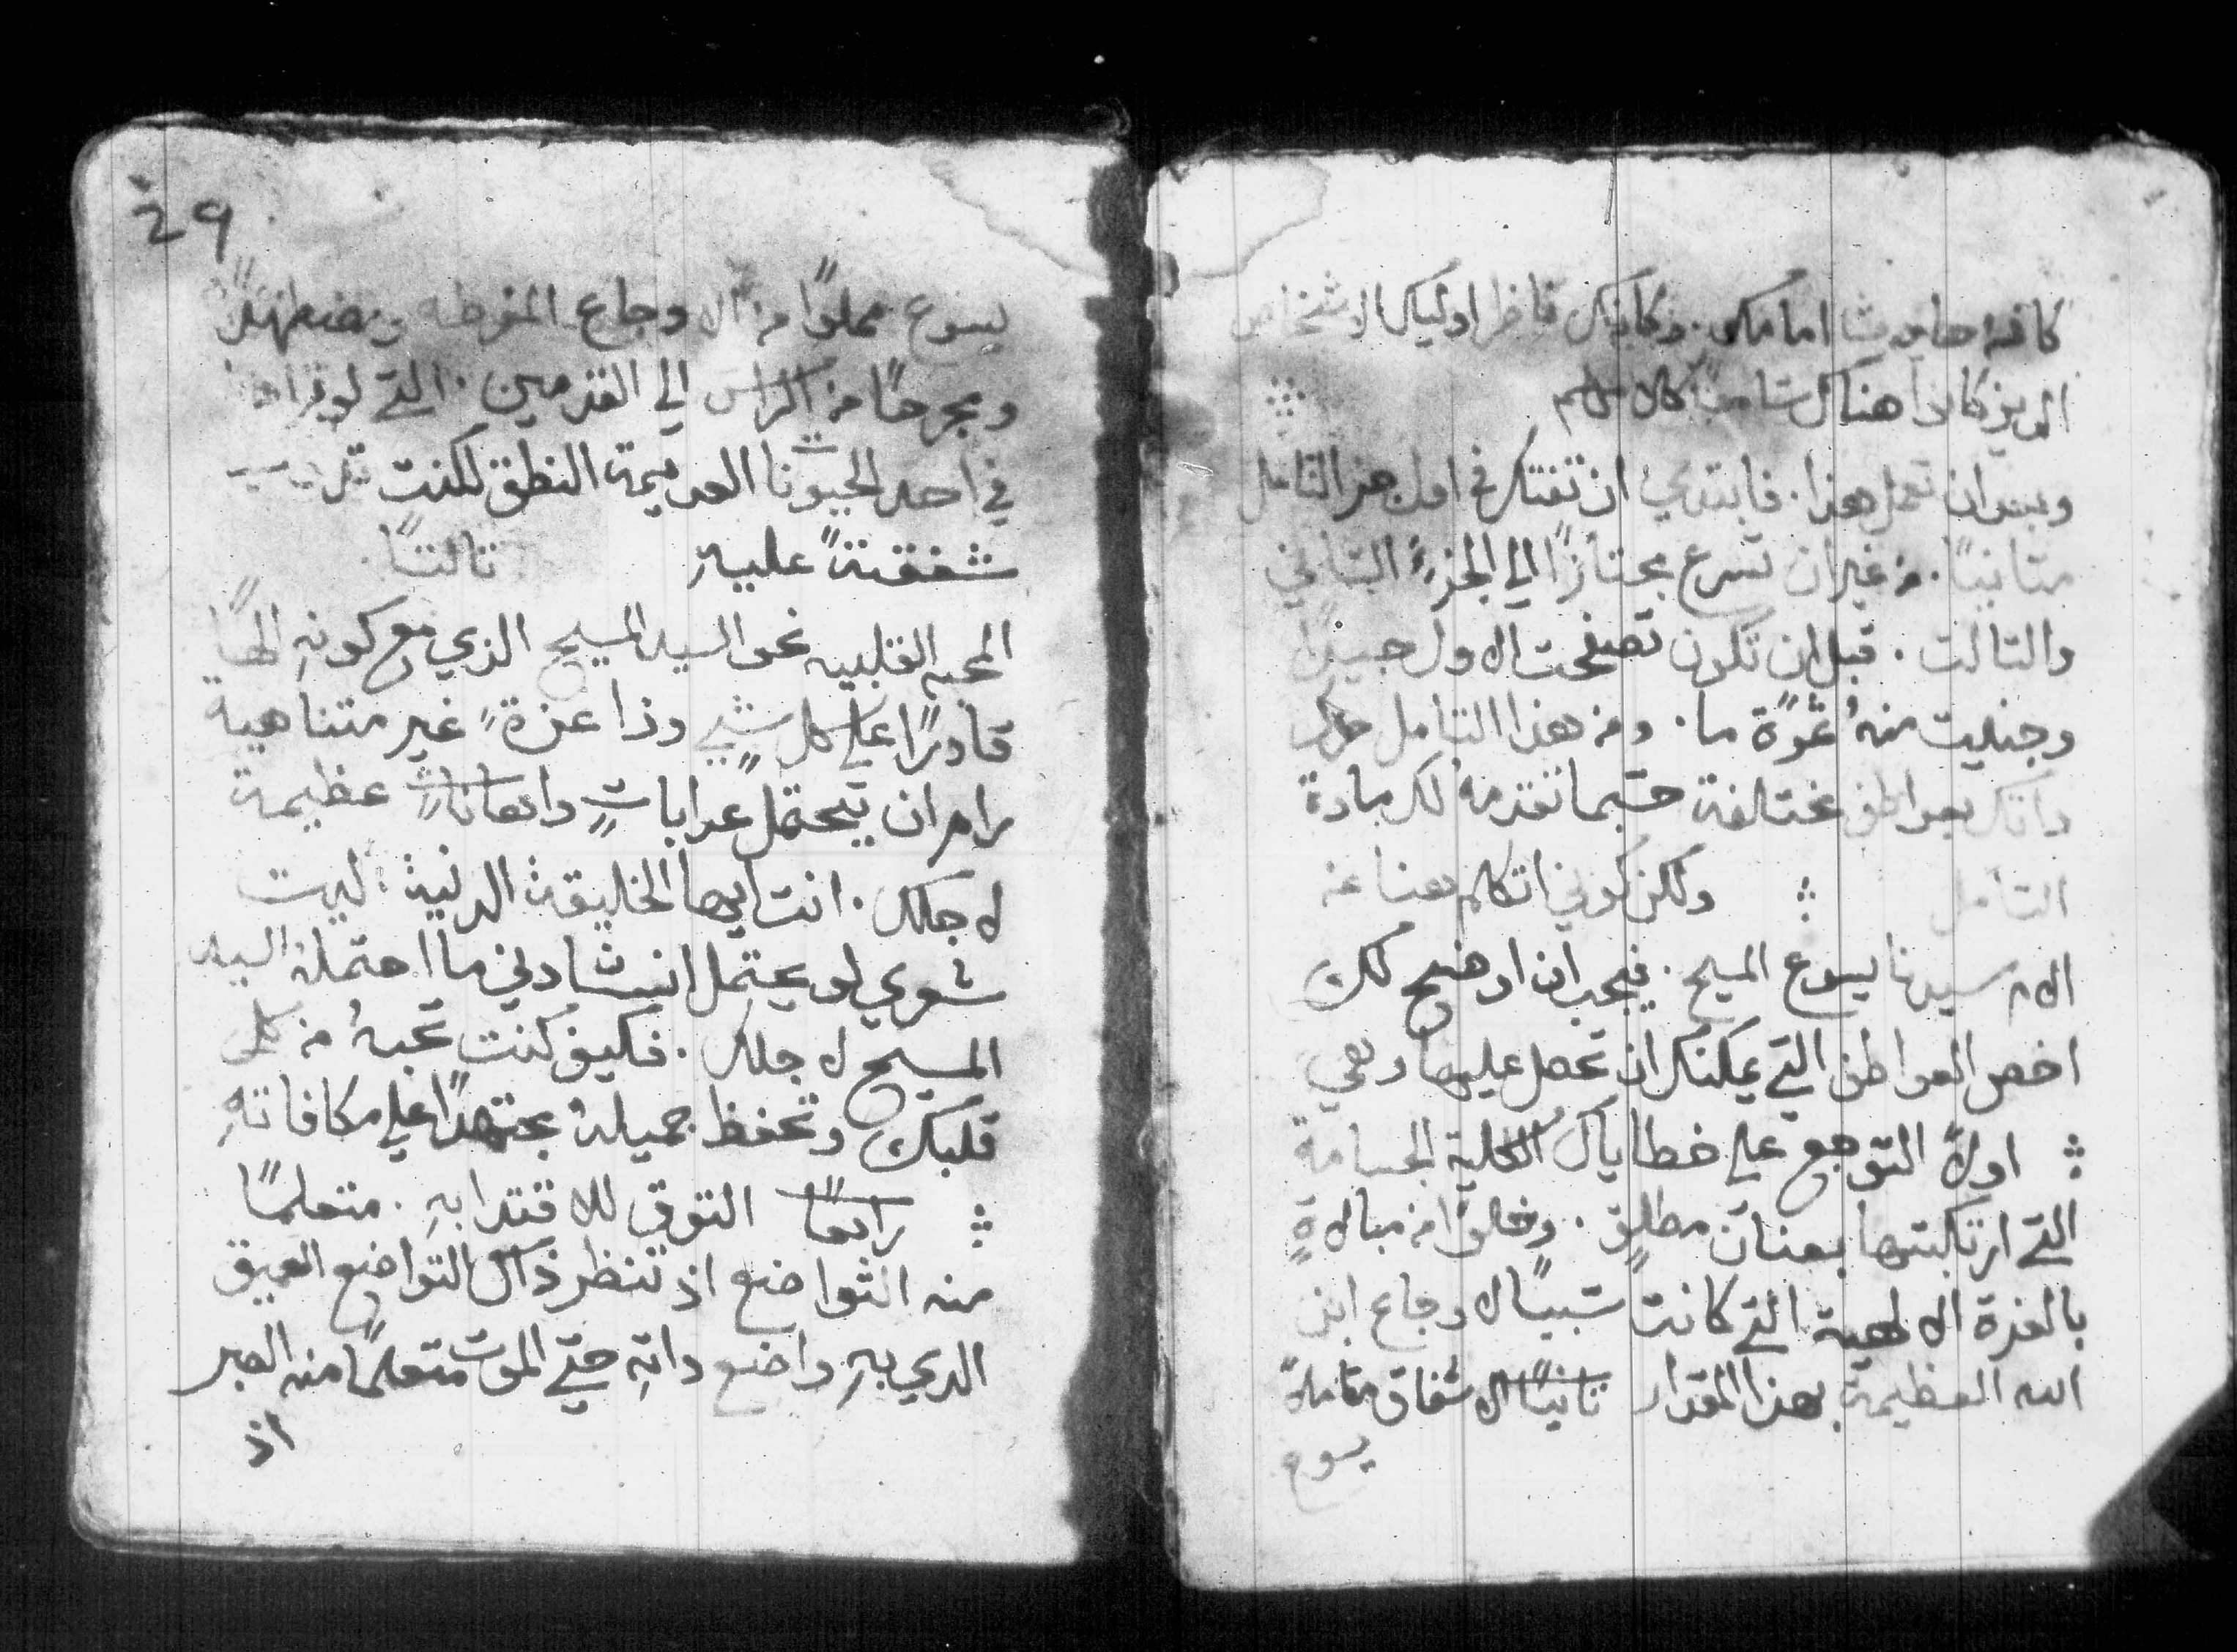 كافه حادثا امامك. وكانك ناظرا اوليك الاشخاص
الدين كانوا هناك سامعًا كلامهم
وبعد ان تعمل هذا. فابتدي ان تفتكر في اول جز التامل
متانيًا. من غير ان تسرع مجتازًا الي الجزءِ التاني
والتالت. قبل ان تكون تصفحت الاول جيدًا
وجنيت منهُ ثمرًة ما. ومن هذا التامل حرك
داتك بعواطف مختلفة حسبما تقدمه لك مادة
التامل ولكن كوني اتكلم هنا عن
الام سيدنا يسوع المسيح. فيجب ان اوضح لك
اخص العواطف التي يمكنك ان تحصل عليها وهي
اولاً التوجع علي خطاياك الكلية الجسامة
التي ارتكبتها بعنان مطلق. من مبالاةٍ
بالعزة الالهية التي كانت سببًا لاوجاع ابن
الله العظيمة بهذا المقدار تانيًا الاشفاق متاملاً
يسوع
29
يسوع مملوًا من الاوجاع المفرطه
ومجرحًا من الراس الي القدمين. التي لو تراها
في احد الحيونات العديمة النطق لكنت
شفقتةً عليه تالتًا
المحبه القلبيه نحو السيد المسيح الذي مع كونهِ الهًا
قادرًا علي كل شيٍ وذا عزةٍ غير متناهية
رام ان يحتمل عدابات واهاناتٍ عظيمة
لاجلك. انت ايها الخليقة الدنية. ليت
شعري لو يحتمل انسانًا دني ما احتمله السيد
المسيح لاجلك. فكيف كنت تحبهُ من كل
قلبك وتحفظ جميلهُ مجتهدًا علي مكافاتهِ
رابعًا التوق للاقتدا بهِ. متعلمًا
منه التواضع اذ تنظر ذاك التواضع العميق
الدي بهِ واضع داتهِ حتي الموت متعلمًا منه الصبر
اذ